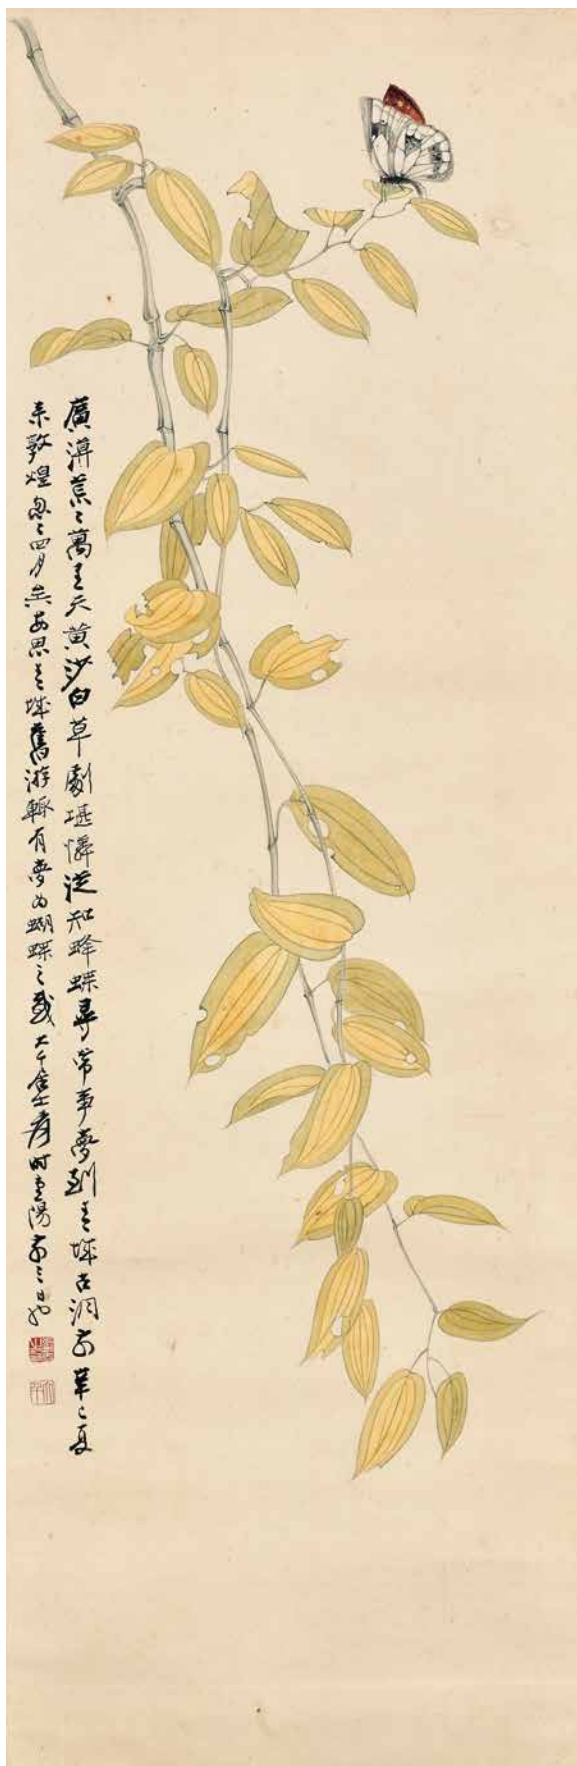 廣漠荒〻萬里天黃沙白草劇堪憐從知蜂蝶尋常事夢到青城古洞前辛巳夏
來敦煌忽〻四月矣每思青城舊游輒有夢為蝴蝶之感大千居士爰時重陽前三日也